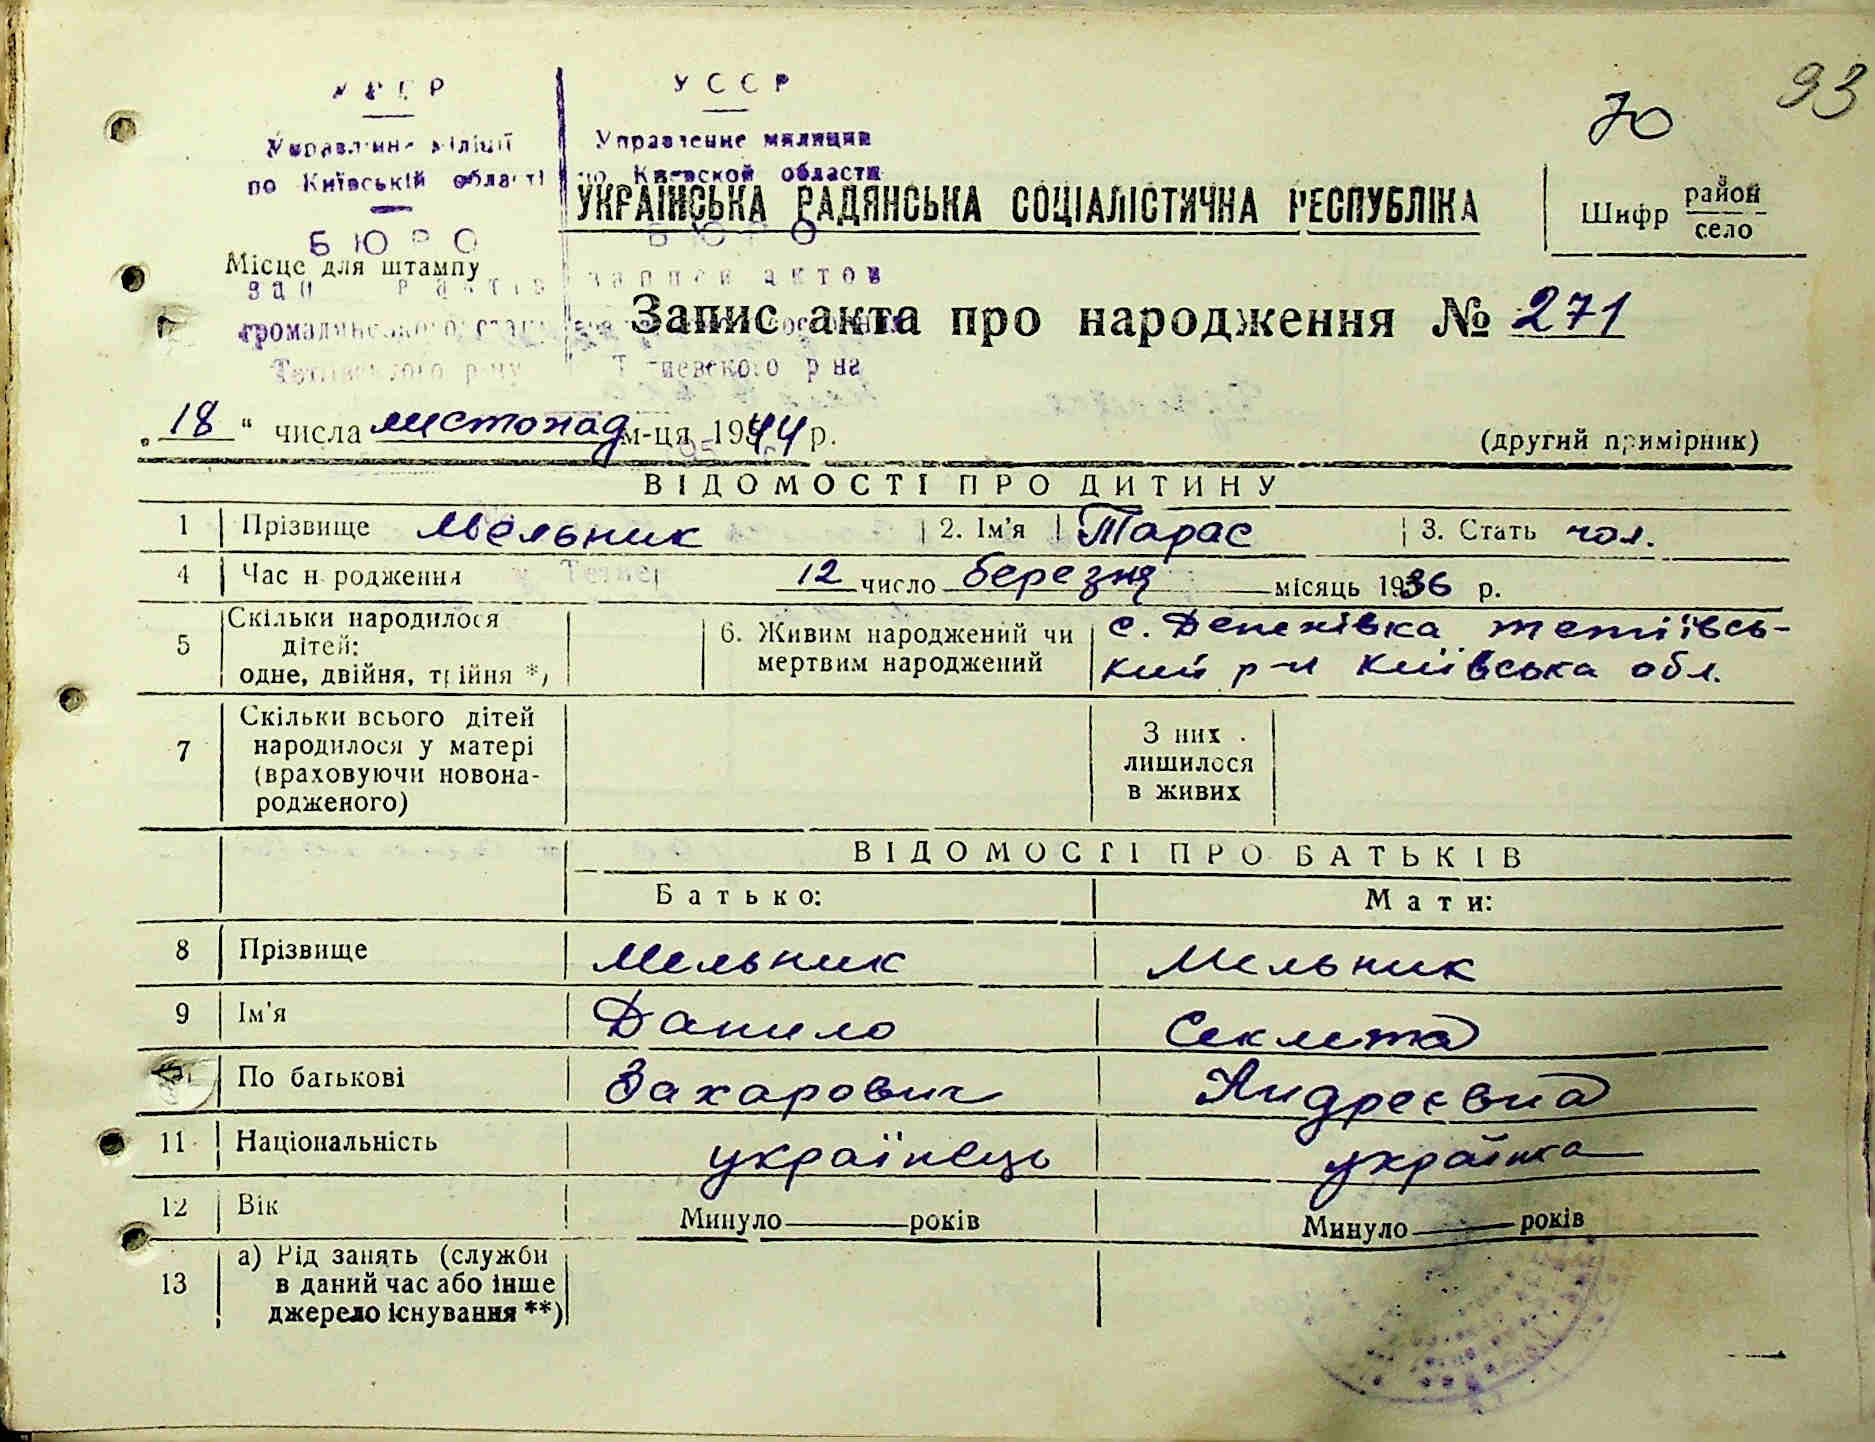 УССР
УССР
70
93
Управление милиции
по Київській області
по Киевской области
УКРАЇНСЬКА РАДЯНСЬКА СОЦІАЛІСТИЧНА РЕСПУБЛІКА
Шифр район
село
БЮРО
БЮРО
Місце для штампу
записи актов
Запис акта про народження № 271
громадянського
р-на
„18“ числа листопад м-ця 1944 р.
(другий примірник)
ВІДОМОСТІ ПРО ДИТИНУ
1 Прізвище Мельник 2. Ім'я Тарас 3. Стать чол.
4 Час народження 12 число березня місяць 1936 р.
5 Скільки народилося
дітей:
одне, двійня, трійня *)
6. Живим народжений чи
мертвим народжений
с. Дененівка тетіївсь-
кий р-н Київська обл.
7 Скільки всього дітей
народилося у матері
(враховуючи новона-
родженого)
З них
лишилося
в живих
ВІДОМОСТІ ПРО БАТЬКІВ
Батько: Мати:
8 Прізвище Мельник Мельник
9 Ім'я Данило Секлета
По батькові Захарович Андреевна
11 Національність українець українка
12 Вік Минуло років Минуло років
13 а) Рід занять (служби
в даний час або інше
джерело існування **)